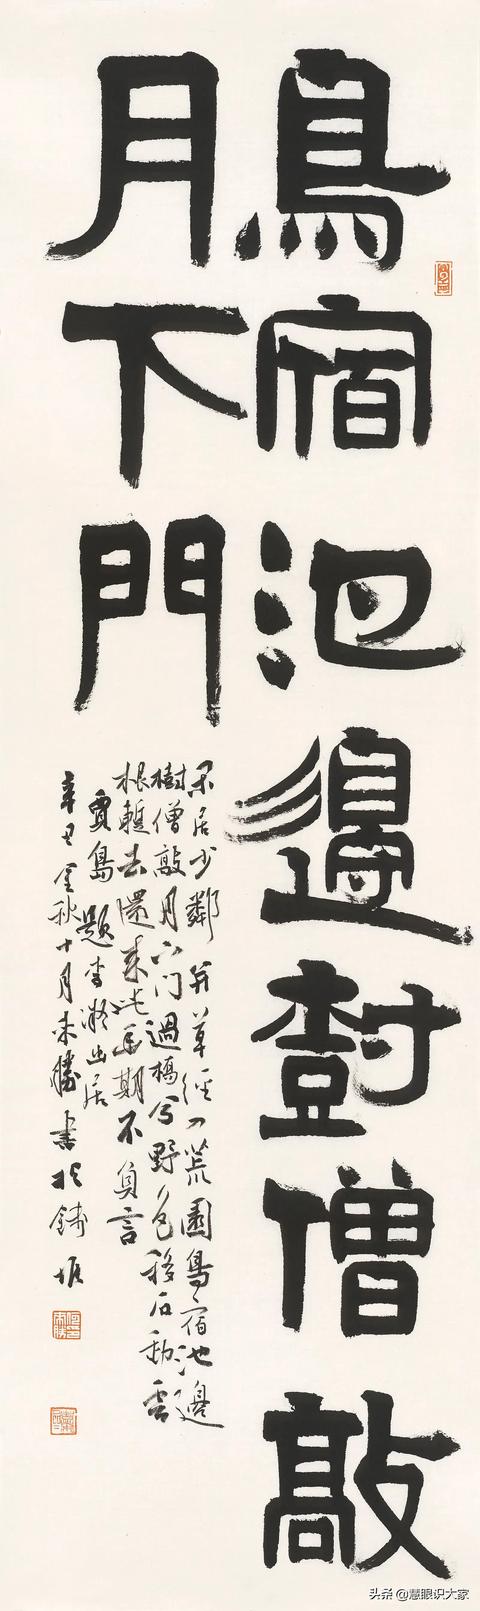 鳥宿池邊樹僧敲
月下門
閑居少鄰并草徑入荒園鳥宿池邊
樹僧敲月下门過橋分野色移石動雲
根暫去還來此幽期不負言
賈島題李凝幽居
辛丑金秋十月書於
头条 @慧眼识大家